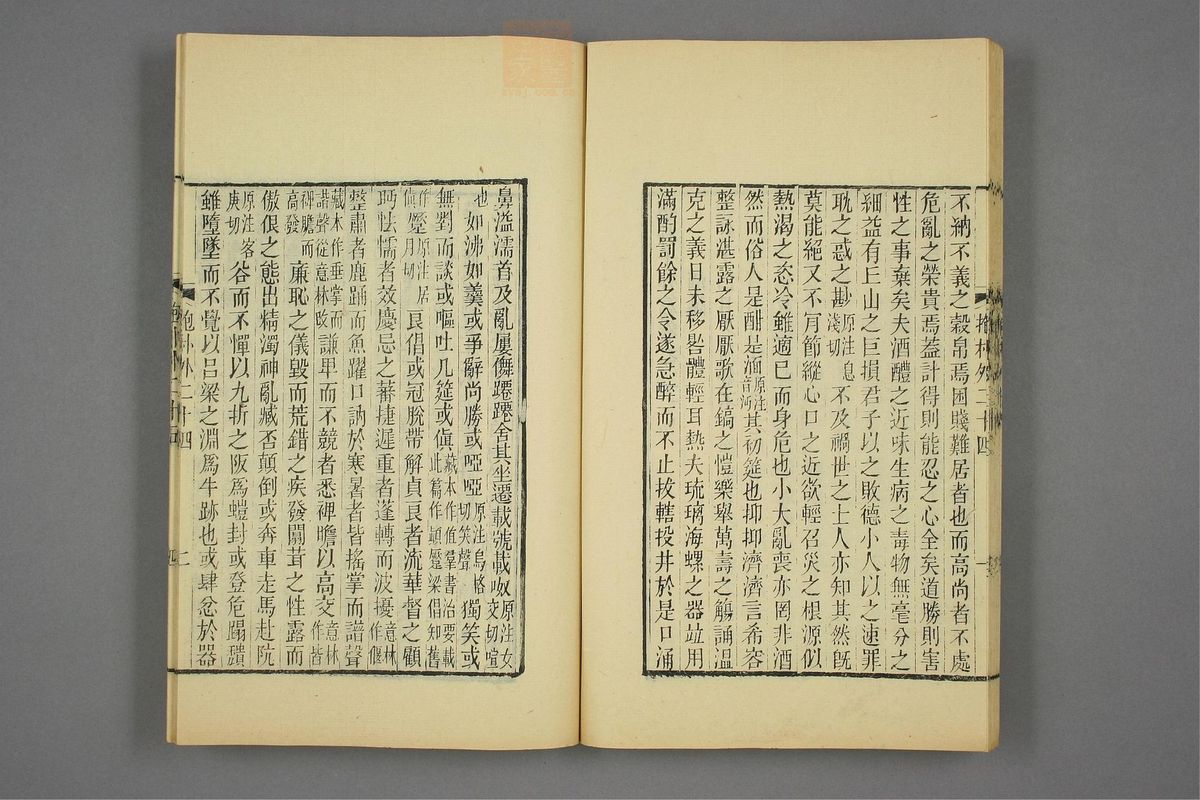 不納不義之穀帛焉困賤難居者也而高尚者不處
危亂之榮貴焉蓋計得則能忍之心全矣道勝則害
性之事棄矣夫酒醴之近味生病之毒物無毫分之
細益有丘山之巨損君子以之敗德小人以之速罪
耽之惑之尠原注息淺切不及禍世之士人亦知其然旣
莫能絕又不肎節縱心口之近欲輕召災之根源似
熱渴之恣冷雖適己而身危也小大亂喪亦罔非酒
然而俗人是酣是湎原注音沔其初筵也抑抑濟濟言希容
整詠湛露之厭厭歌在鎬之愷樂舉萬壽之觴誦溫
克之義日未移晷體輕耳熱夫琉璃海螺之器竝用
滿酌罰餘之令遂急醉而不止拔轄投井於是口涌
抱朴外二十四
一
鼻溢濡首及亂屢儛蹮蹮舍其坐遷載號載呶原注女交切喧
也如沸如羹或爭辭尚勝或啞啞原注烏格切笑聲獨笑或
無對而談或嘔吐几筵或傎藏本作值羣書治要載此篇作顚蹷梁倡知舊
作傎蹷原注居月切良倡或冠脫帶解貞良者流華督之顧
眄怯懦者效慶忌之蕃捷遲重者蓬轉而波擾意林作偃
整肅者鹿踊而魚躍口訥於寒暑者皆搖掌而譜聲
藏本作垂掌而諧聲從意林改謙卑而不競者悉裨瞻以高交意林作皆
裨膽而高發廉恥之儀毀而荒錯之疾發闒茸之性露而
傲佷之態出精濁神亂臧否顛倒或奔車走馬赴阬
原注客庚切谷而不憚以九折之阪爲螘封或登危蹋穨
雖墮墜而不覺以呂梁之淵爲牛跡也或肆忿於器
抱朴外二十四
二